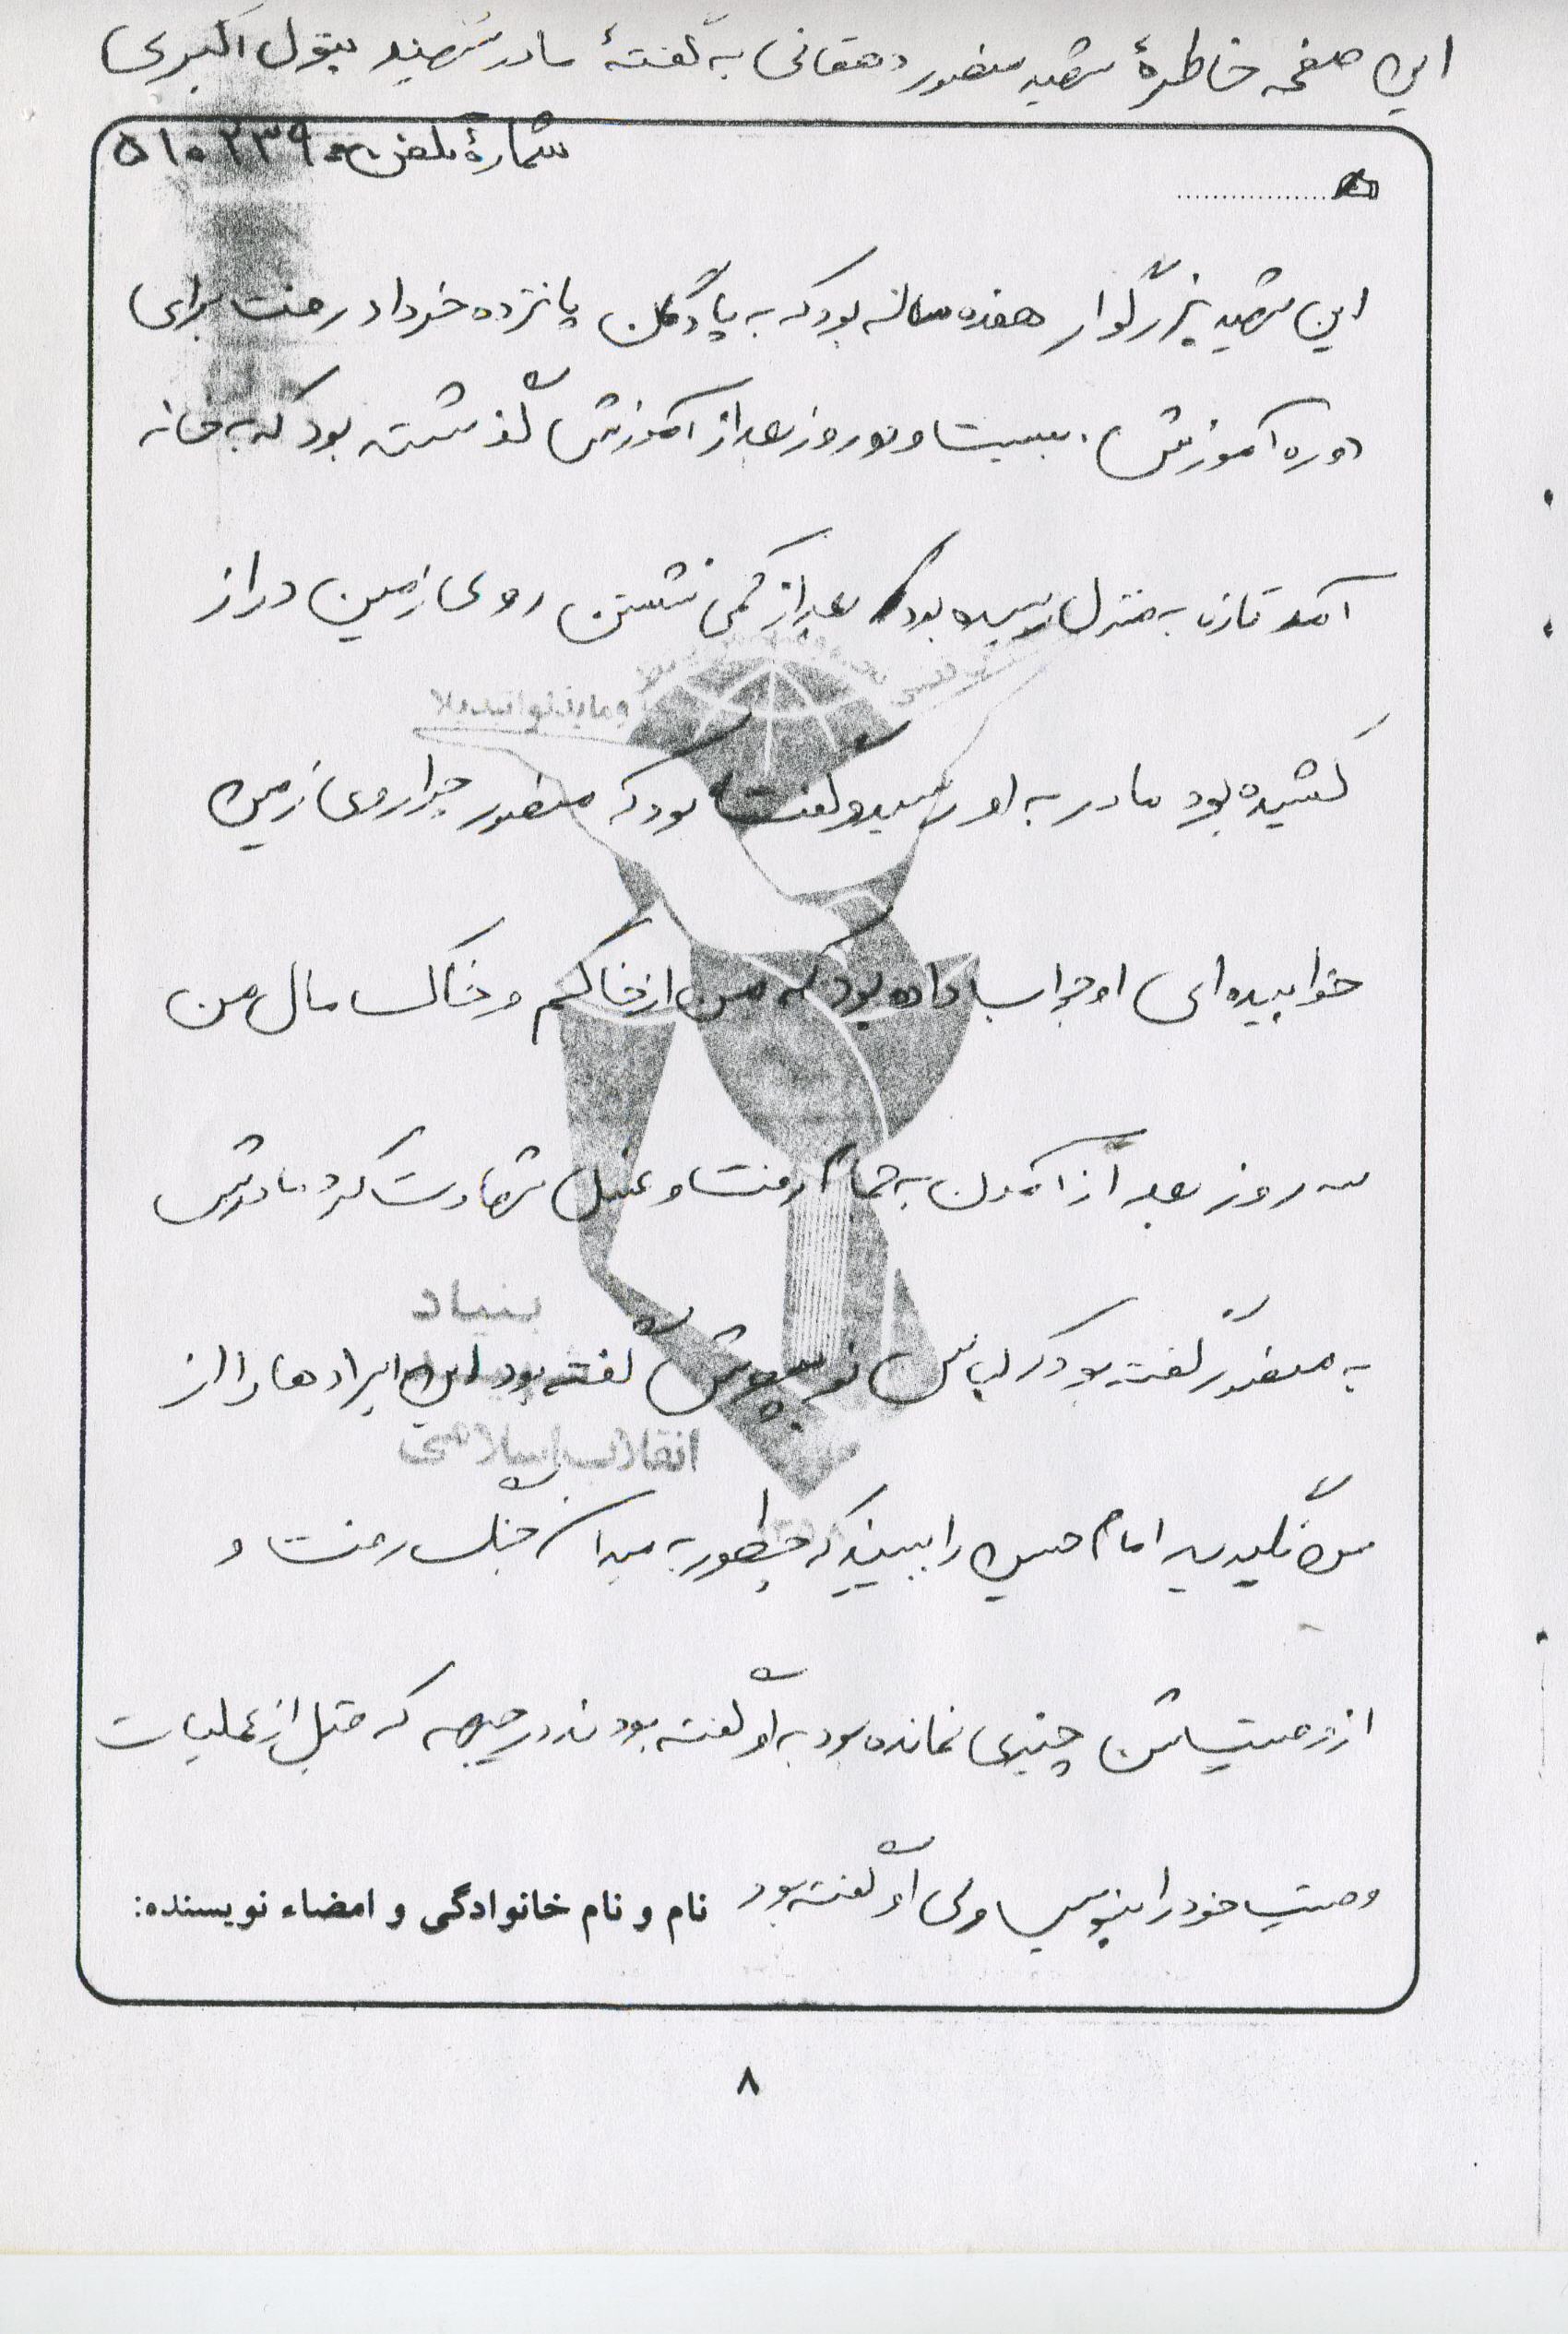 این صفحه خاطرهٔ شهید منصور دهقانی به گفتهٔ مادر شهید بتول اکبری
شمارهٔ تلفن ۵۱۰۲۳۹
این شهید بزرگوار هفده ساله بود که به پادگان پانزده خرداد رفت برای
دوره آموزش. بیست و دو روز بعد از آموزش گذشته بود که به خانه
آمد تازه به منزل رسیده بود بعد از کمی نشستن روی زمین دراز
کشیده بود مادر به او رسید و گفت بود که منصور چرا روی زمین
خوابیده‌ای او جواب داده بود که من از خاکم و خاک مال من
سه روز بعد از آمدن به حمام رفت و غسل شهادت کرد مادرش
به منصور گفته بود که لباس نو بپوش گفته بود این ایرادها را از
من نگیرید امام حسین را ببینید که چطور به میدان جنگ رفت و
از وصیتش چیزی نمانده بود به او گفته بودند در جبهه که قبل از عملیات
وصیت خود را بنویس ولی او گفته بود
نام و نام خانوادگی و امضاء نویسنده:
بنیاد
انقلاب اسلامی
۸